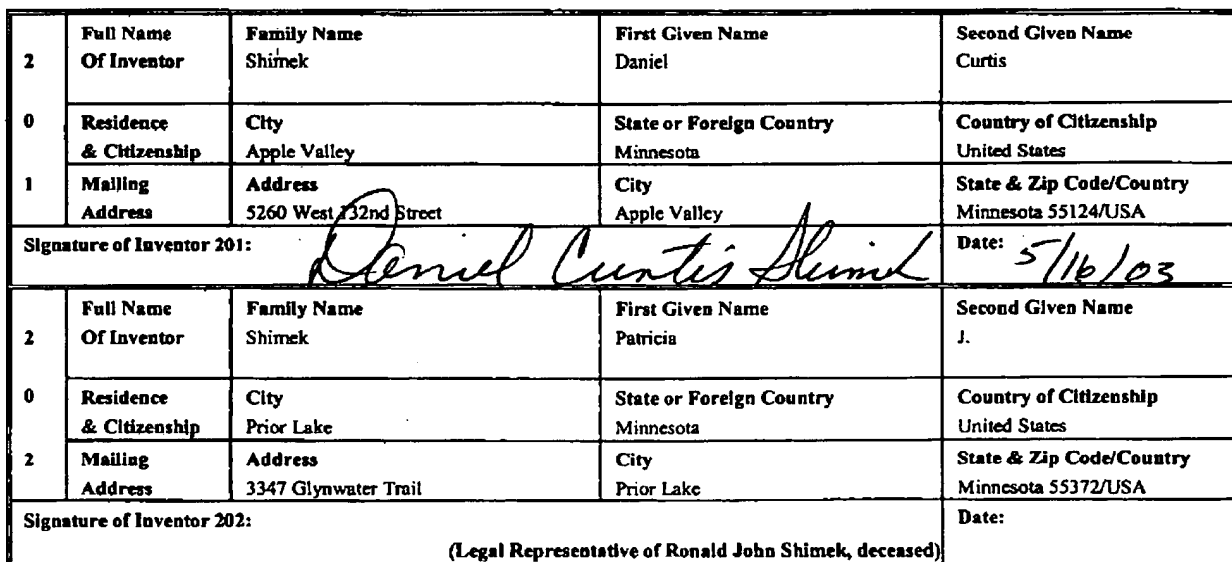 2 0 1
Full Name Of Inventor Family Name Shimek First Given Name Daniel Second Given Name Curtis
Residence & Citizenship City Apple Valley State or Foreign Country Minnesota Country of Citizenship United States
Mailing Address Address 5260 West 132nd Street City Apple Valley State & Zip Code/Country Minnesota 55124/USA
Signature of Inventor 201: Daniel Curtis Shimek Date: 5/16/03
2 0 2
Full Name Of Inventor Family Name Shimek First Given Name Patricia Second Given Name J.
Residence & Citizenship City Prior Lake State or Foreign Country Minnesota Country of Citizenship United States
Mailing Address Address 3347 Glynwater Trail City Prior Lake State & Zip Code/Country Minnesota 55372/USA
Signature of Inventor 202: Date:
(Legal Representative of Ronald John Shimek, deceased)